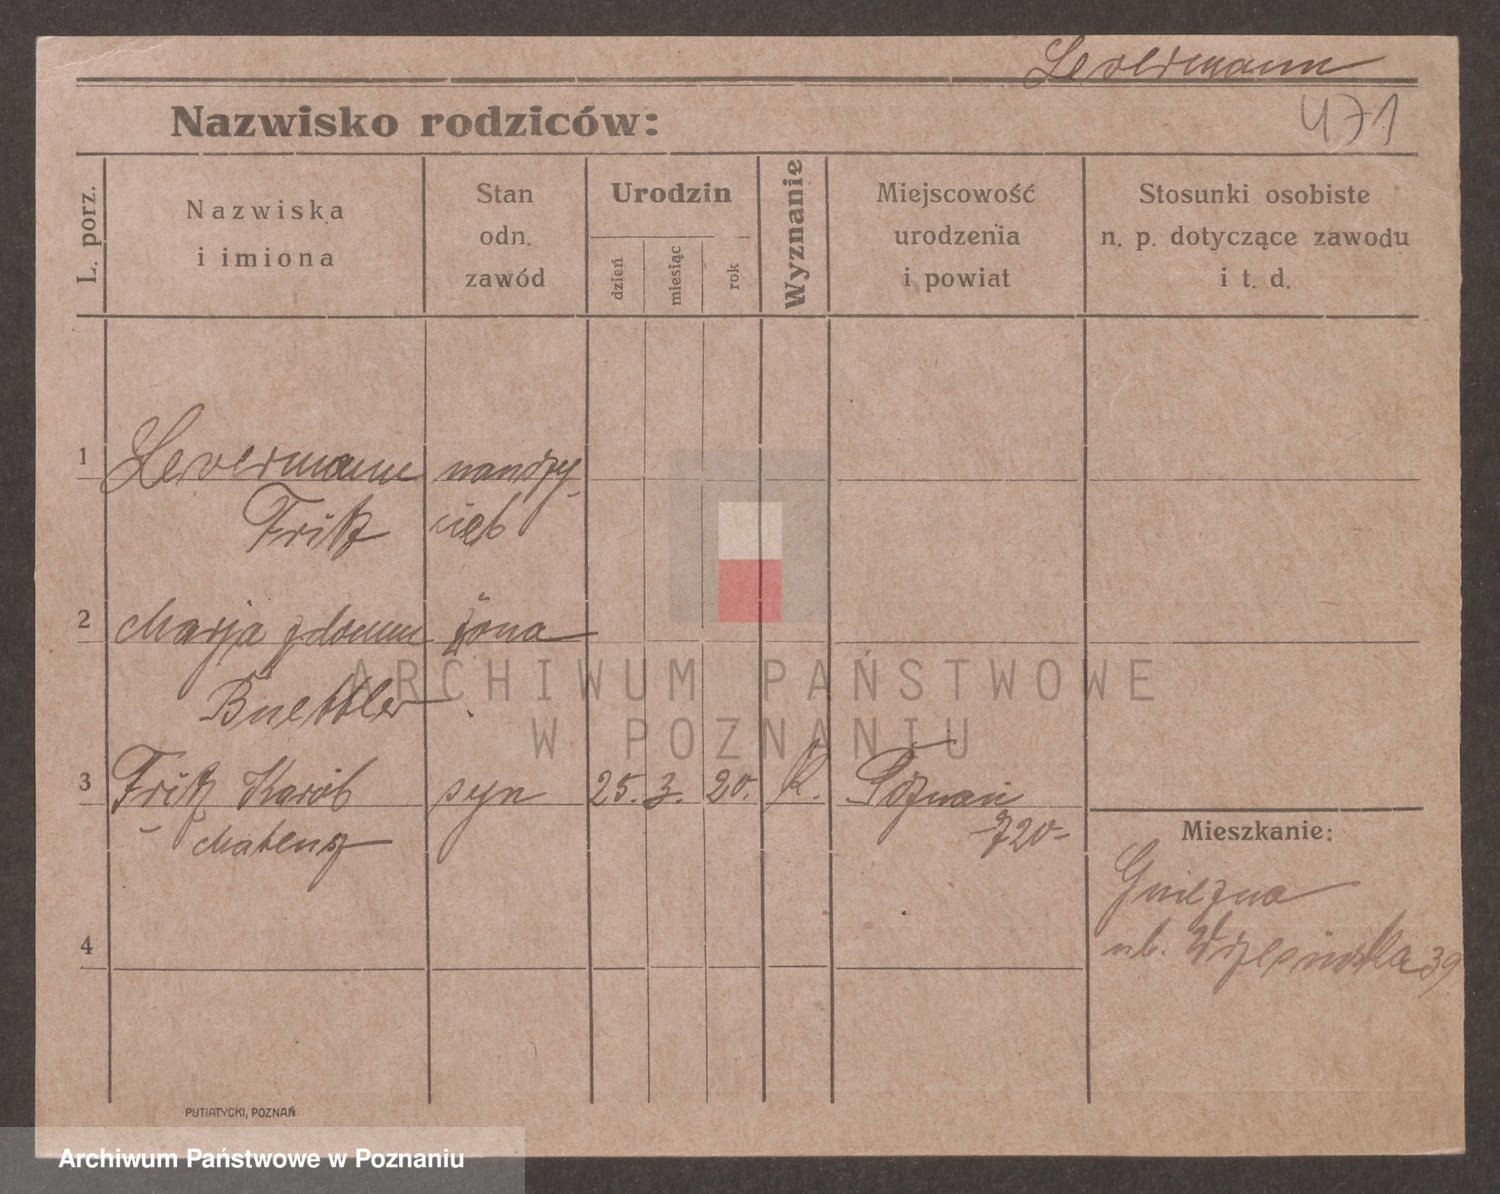 Levermann
471
Nazwisko rodziców:
L. porz.
Nazwiska
i imiona
Stan
odn.
zawód
Urodzin
dzień
miesiąc
rok
Wyznanie
Miejscowość
urodzenia
i powiat
Stosunki osobiste
n. p. dotyczące zawodu
i t. d.
1 Levermann
Fritz
2 Marja z domu żona
Buettler
3 Fritz Karol syn 25. 3. 20. K. Poznań
Mateusz 720
Mieszkanie:
Gniezno
ul. Wrzesińska 39
4
PUTIATYCKI, POZNAŃ
ARCHIWUM PAŃSTWOWE
W POZNANIU
Archiwum Państwowe w Poznaniu